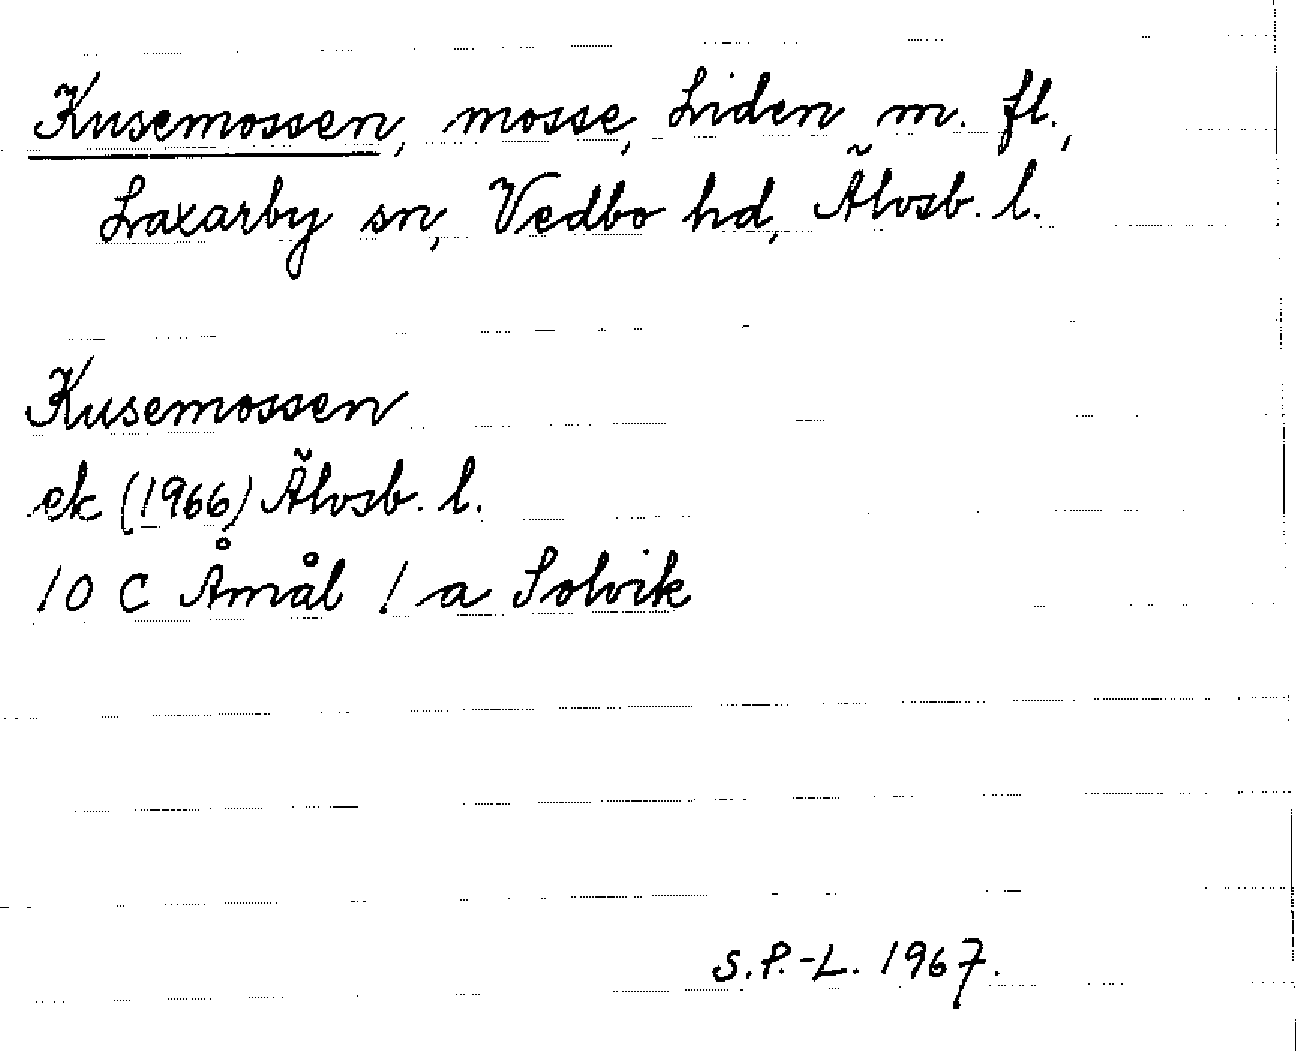 Kusemossen, mosse, Liden m. fl.,
Laxarby sn, Vedbo hd, Älvsb. l.
Kusemossen
ek (1966) Älvsb. l.
10 C Åmål 1 a Solvik
S.P.-L. 1967.